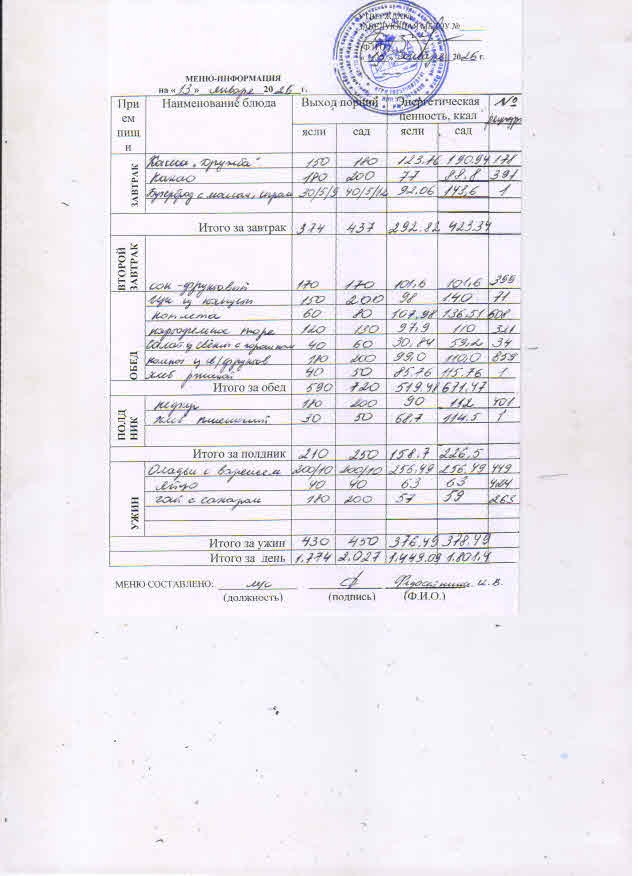 ЗАВЕДУЮЩАЯ МБДОУ №
(Ф.И.О.)
« 13 » января 2026 г.
МЕНЮ-ИНФОРМАЦИЯ
на « 13 » января 2026 г.
Прием пищи Наименование блюда Выход порции Энергетическая ценность, ккал №
ясли сад ясли сад
ЗАВТРАК
Каша „дружба" 150 180 123.16 190.94 171
Какао 180 200 77 88.8 391
Бутерброд с маслом, сыром 30/5/9 40/5/12 92.06 143,6 1
Итого за завтрак 374 437 292.82 423.34
ВТОРОЙ ЗАВТРАК
сок фруктовый 170 170 101,6 101,6 399
ОБЕД
щи из капусты 150 200 98 140 71
котлета 60 80 107,98 136.51 608
картофельное пюре 120 130 97,9 110 321
Салат из свёклы с горошком 40 60 30,84 59,2 34
компот из с/фруктов 180 200 99,0 110,0 859
хлеб ржаной 40 50 85.76 115.76 1
Итого за обед 590 720 519.48 671,47
ПОЛДНИК
кефир 180 200 90 112 401
хлеб пшеничный 30 50 68,7 114.5 1
Итого за полдник 210 250 158.7 226,5
УЖИН
Оладьи с вареньем 200/10 200/10 256,49 256,49 449
яйцо 40 40 63 63 424
чай с сахаром 180 200 57 59 263
Итого за ужин 430 450 376,49 378.49
Итого за день 1.774 2.027 1.449.09 1.801.4
МЕНЮ СОСТАВЛЕНО: И. В.
(должность) (подпись) (Ф.И.О.)